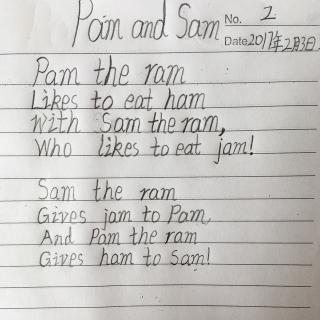 Pam and Sam
No. 2
Date 2017年2月3日
Pam the ram
Likes to eat ham
With Sam the ram,
Who likes to eat jam!
Sam the ram
Gives jam to Pam,
And Pam the ram
Gives ham to Sam!